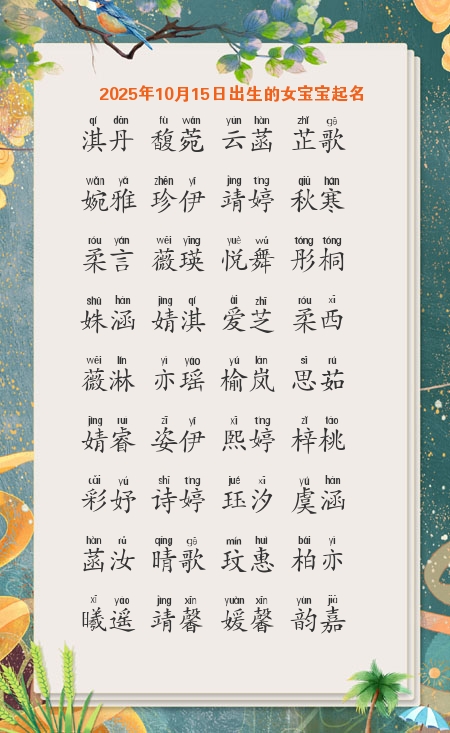 2025年10月15日出生的女宝宝起名
qí dān fù wǎn yún hàn zhǐ gē
淇丹 馥菀 云菡 芷歌
wǎn yǎ zhēn yī jìng tíng qiū hán
婉雅 珍伊 靖婷 秋寒
róu yán wēi yīng yuè wǔ tóng tóng
柔言 薇瑛 悦舞 彤桐
shū hán jìng qí ài zhī róu xī
姝涵 婧淇 爱芝 柔西
wēi lín yì yáo yú lán sī rú
薇淋 亦瑶 榆岚 思茹
jìng ruì zī yī xī tíng zǐ táo
婧睿 姿伊 熙婷 梓桃
cǎi yú shī tíng jué xī yú hán
彩妤 诗婷 珏汐 虞涵
hàn rǔ qíng gē mín huì bǎi yì
菡汝 晴歌 玟惠 柏亦
xī yáo jìng xīn yuàn xīn yùn jiā
曦遥 靖馨 媛馨 韵嘉